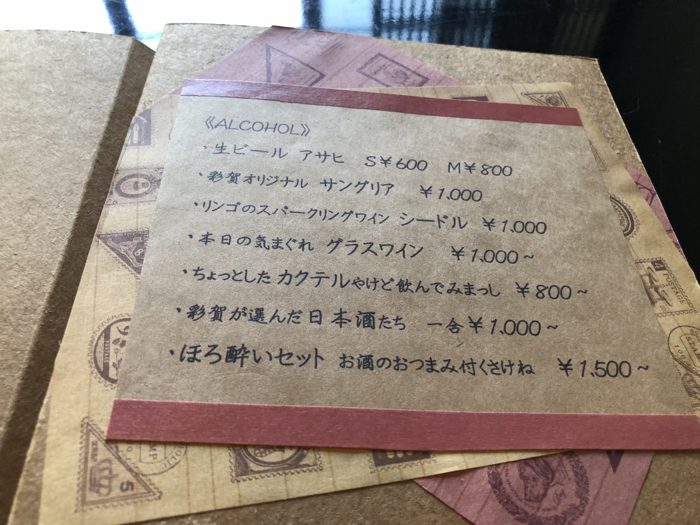 《ALCOHOL》
・生ビール アサヒ S¥600 M¥800
・彩賀オリジナル サングリア ¥1.000
・リンゴのスパークリングワイン シードル ¥1.000
・本日の気まぐれ グラスワイン ¥1.000~
・ちょっとした カクテルやけど飲んでみまっし ¥800~
・彩賀が選んだ日本酒たち 一合¥1.000~
・ほろ酔いセット お酒のおつまみ付くさけね ¥1.500~